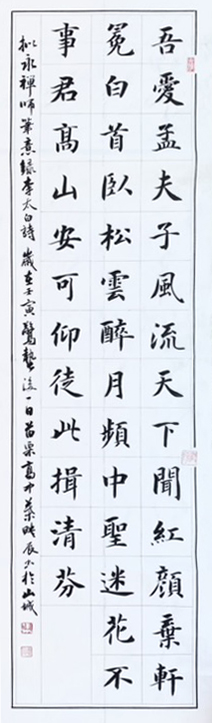 吾愛孟夫子風流天下聞紅顏棄軒
冕白首臥松雲醉月頻中聖迷花不
事君高山安可仰徒此揖清芬
拟永禪師筆意錄李太白詩歲在壬寅驚蟄後一日苗栗高中葉曉辰書於山城